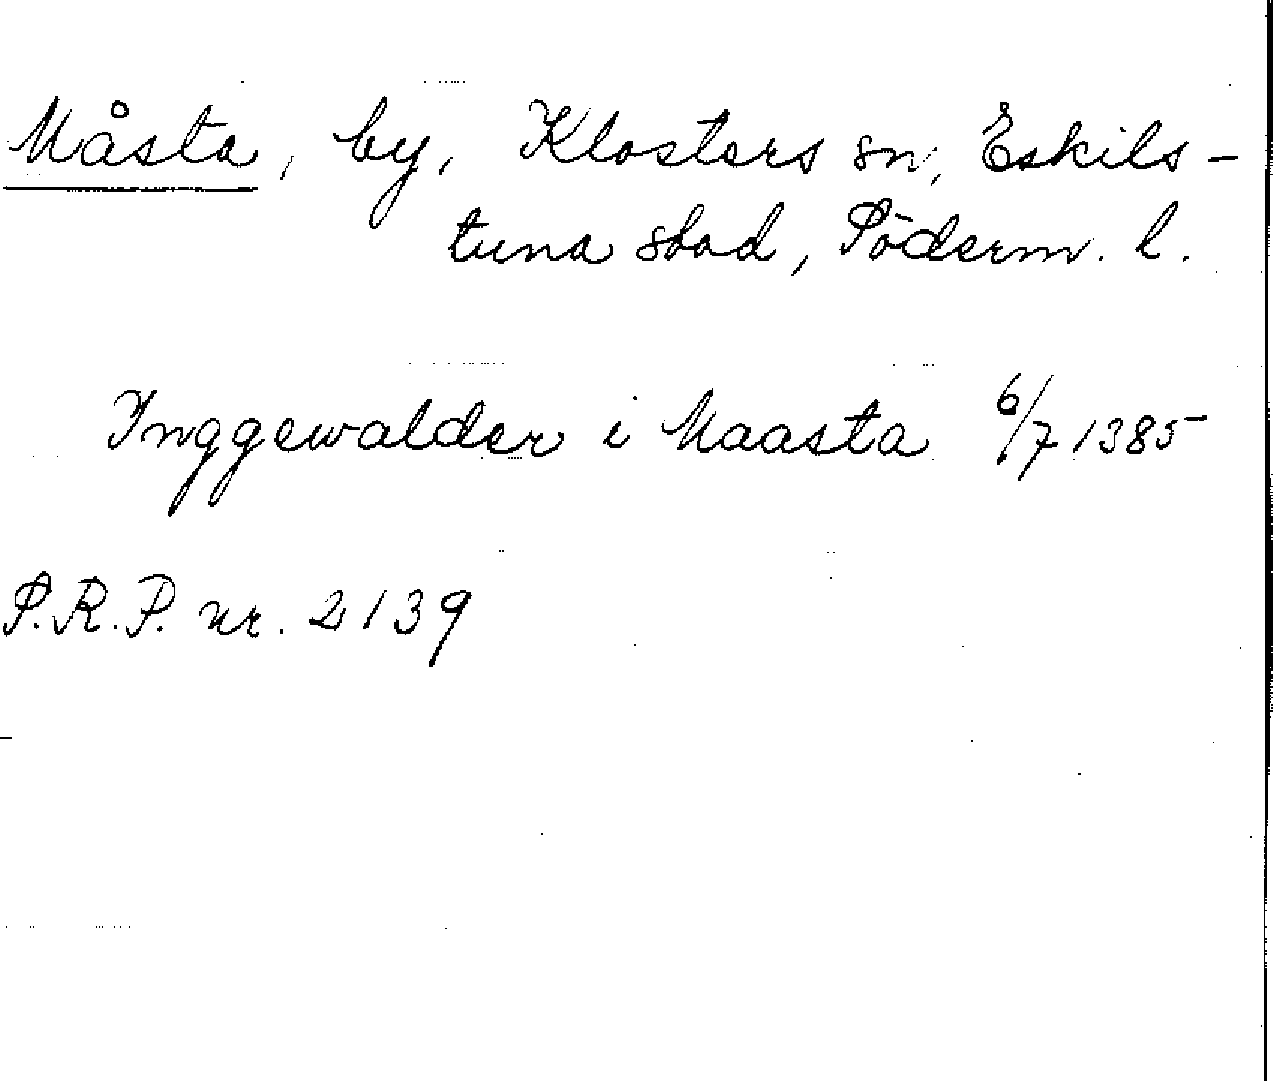 Måsta, by, Klosters sn, Eskils-
tuna stad, Söderm. l.
Inggewalder i Maasta 6/7 1385
S.R.P. nr. 2139